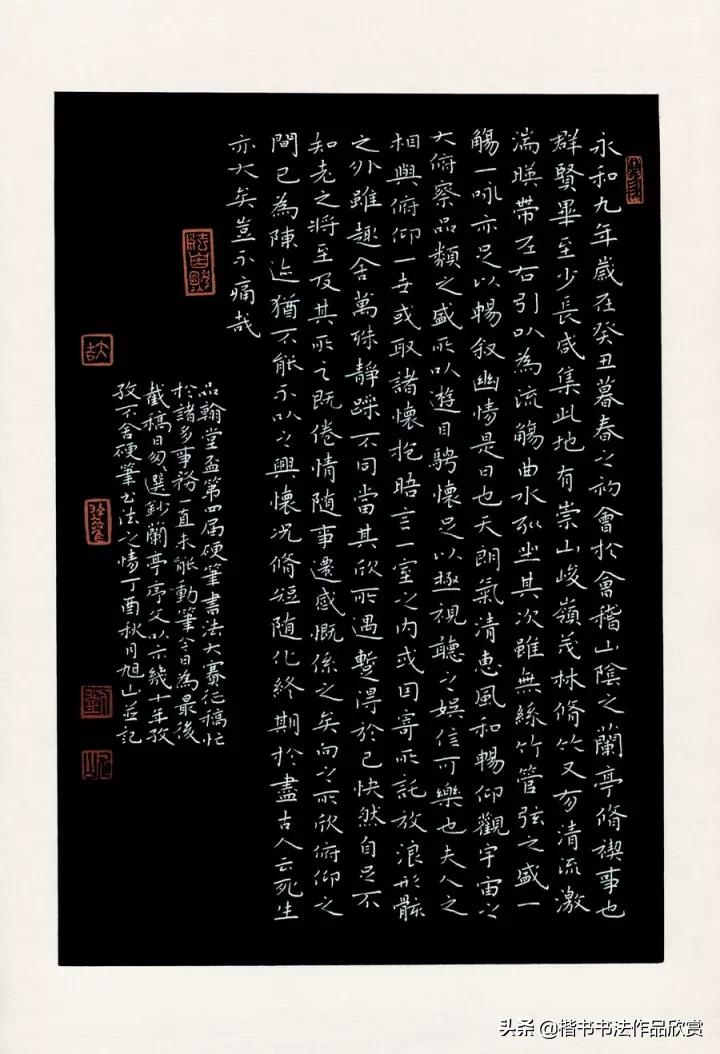 永和九年歲在癸丑暮春之初會於會稽山陰之蘭亭脩禊事也
群賢畢至少長咸集此地有崇山峻嶺茂林脩竹又有清流激
湍暎帶左右引以為流觴曲水列坐其次雖無絲竹管弦之盛一
觴一咏亦足以暢叙幽情是日也天朗氣清惠風和暢仰觀宇宙之
大俯察品類之盛所以遊目騁懷足以極視聽之娛信可樂也夫人之
相與俯仰一世或取諸懷抱晤言一室之內或因寄所託放浪形骸
之外雖趣舍萬殊靜躁不同當其欣所遇暫得於己快然自足不
知老之將至及其所之既倦情隨事遷感慨係之矣向之所欣俯仰之
間已為陳迹猶不能不以之興懷况脩短隨化終期於盡古人云死生
亦大矣豈不痛哉
品翰堂盃第四届硬筆書法大赛征稿忙
於諸多事務一直未能動筆今日為最後
截稿日匆選鈔蘭亭序文以示幾十年孜
孜不舍硬筆书法之情丁酉秋月旭山並記
头条 @楷书书法作品欣赏